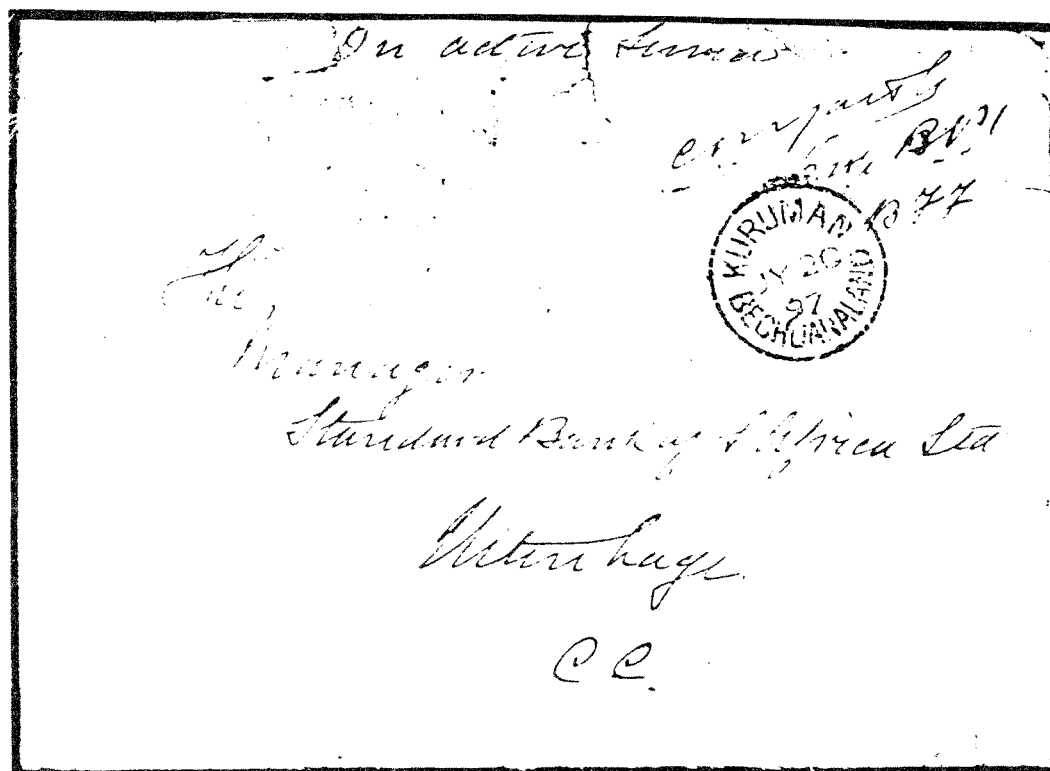 On active Service
B77
KURUMAN
JY 20
97
BECHUANALAND
The
Manager
Standard Bank of S Africa Ltd
Uitenhage
C C.